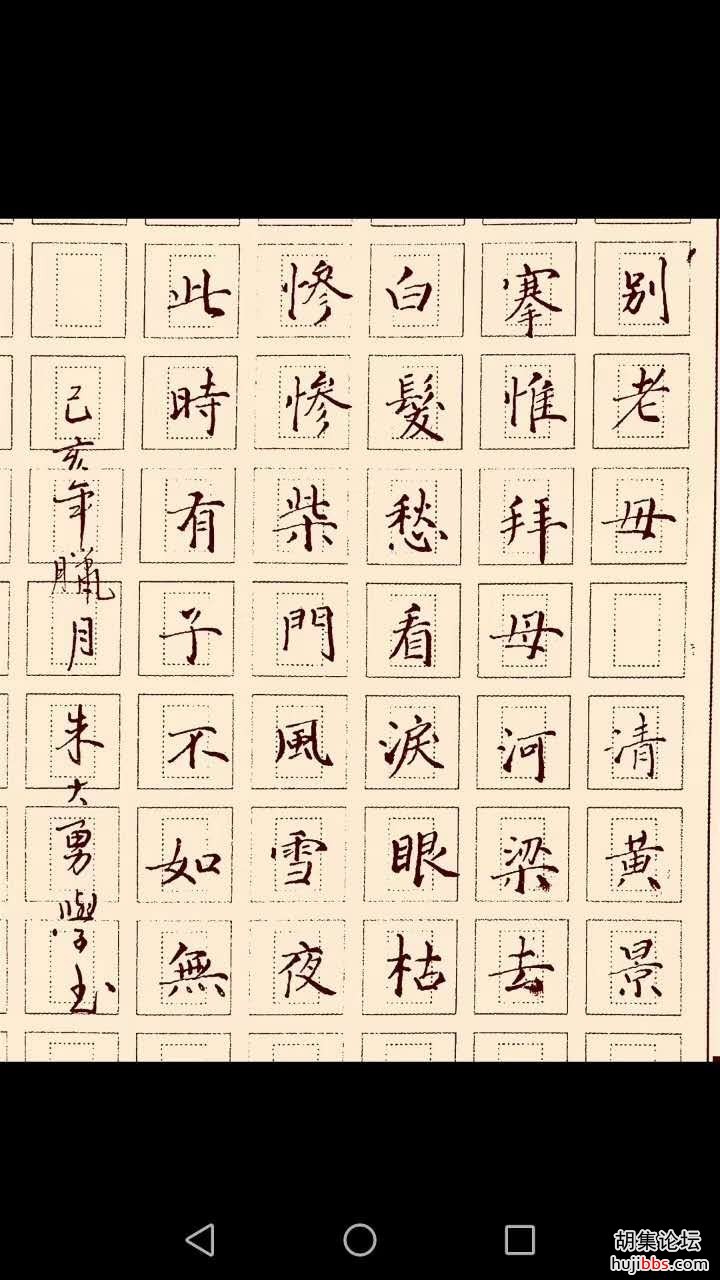 別老母 清黄景
搴惟拜母河梁去
白髮愁看淚眼枯
慘慘柴門風雪夜
此時有子不如無
己亥年臘月 朱大勇學
胡集论坛
hujibbs.com